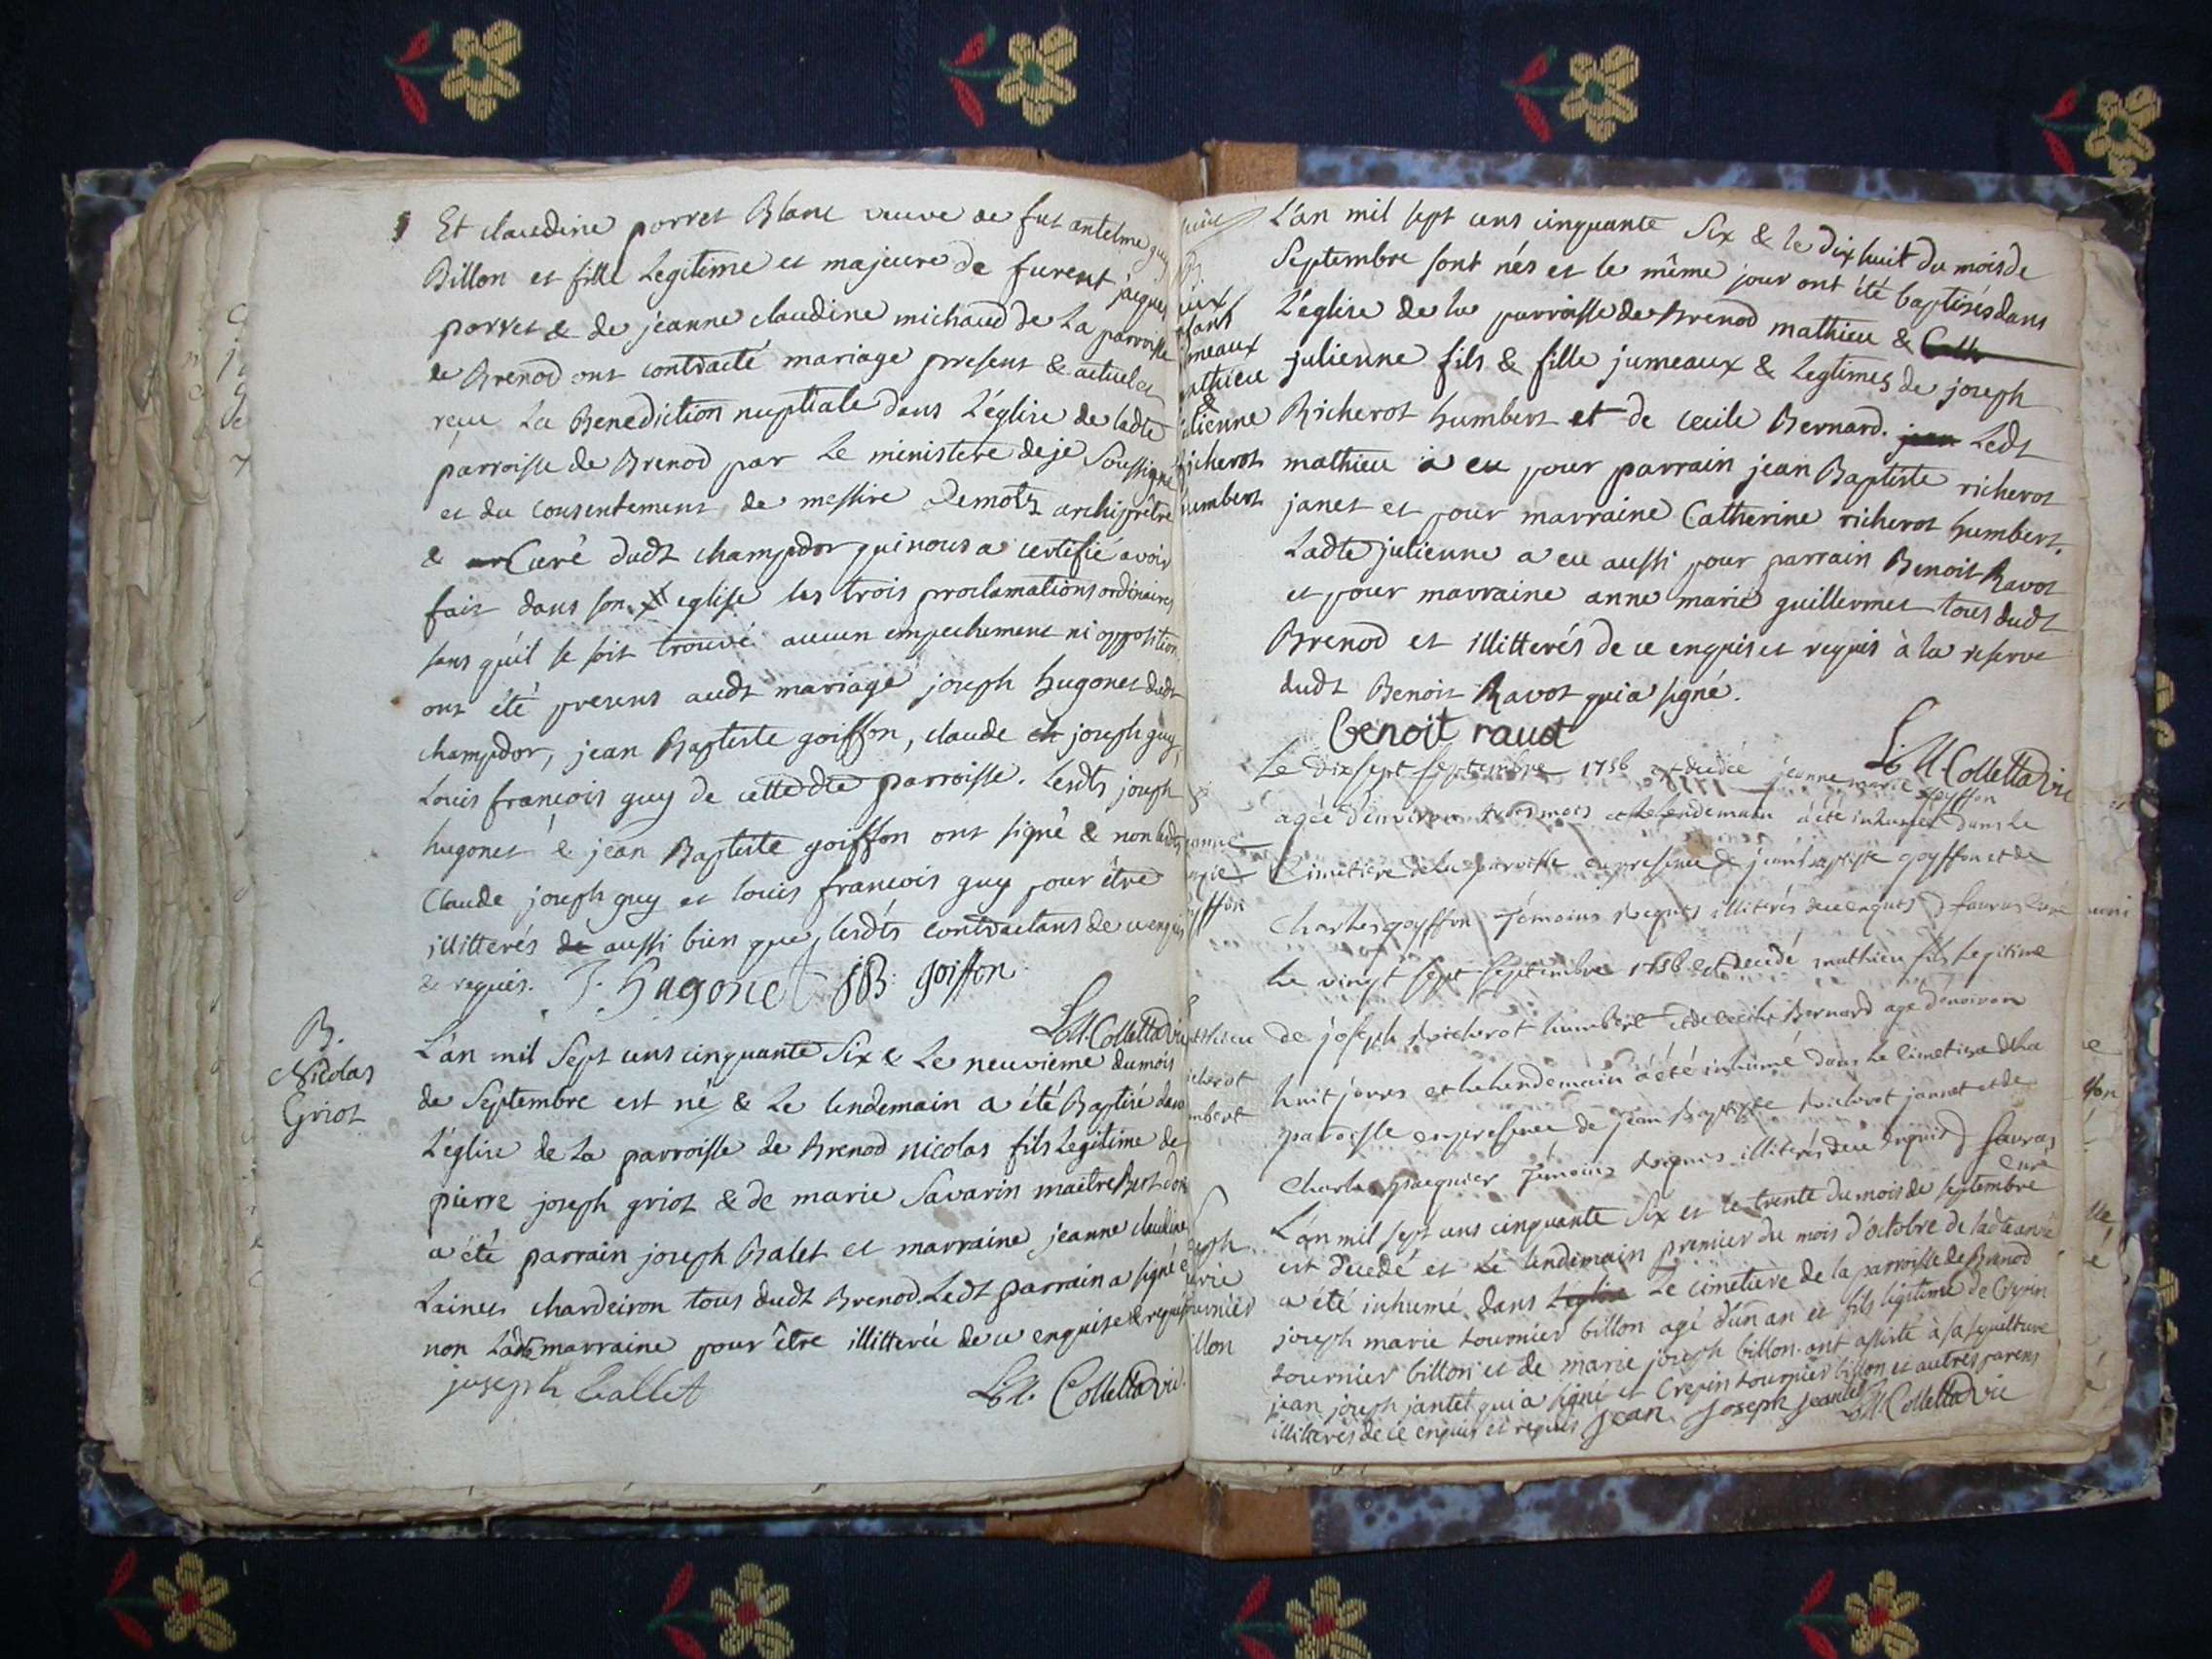 Et claudine porret Blanc veuve de fut antelme guy
Billon et fille Legitime et majeure de furent jacques
porret & de jeanne claudine michaud de La parroisse
de Brenod ont contracté mariage present & actuel et
reçu La Benediction nuptiale dans L'église de ladte
parroisse de Brenod par Le ministere de je Soussigné
et du consentement de messire Demotz archiprêtre
& Curé dudt champdor qui nous a certifié avoir
fait dans son eglise les trois proclamations ordinaires
sans qu'il se soit trouvé aucun empechement ni opposition
ont été presens audt mariage joseph hugonet dudt
champdor, jean Baptiste goiffon, claude joseph guy,
Louis francois guy de cettedte parroisse. Lesdts joseph
hugonet & jean Baptiste goiffon ont signé & non lesdts
Claude joseph guy et louis francois guy pour être
illitterés de aussi bien que lesdts contractans de ce enquis
& requis. J. Hugonet JB: goiffon
L.M. Colletta vic
B.
Nicolas
Griot
L'an mil Sept cens cinquante Six & Le neuvieme du mois
de Septembre est né & Le lendemain a été Baptisé dans
L'église de La parroisse de Brenod nicolas fils Legitime de
pierre joseph griot & de marie Savarin maitre Bert dont
a été parrain joseph Balet et marraine jeanne claudine
Laines chardeiron tous dudt Brenod. Ledt parrain a signé &
non ladte marraine pour être illitterée de ce enquise & requise
joseph ballet
L.M. Colletta vic.
jumeaux
mathieu
&
julienne
richerot
humbert
L'an mil sept cens cinquante Six & le dix huit du mois de
Septembre sont nés et le même jour ont été baptisés dans
L'église de la parroisse de Brenod mathieu & Cath
julienne fils & fille jumeaux & Legtimes de joseph
Richerot humbert et de cecile Bernard. jean Ledt
mathieu a eu pour parrain jean Baptiste richerot
janet et pour marraine Catherine richerot humbert.
Ladte julienne a eu aussi pour parrain Benoit Ravot
et pour marraine anne marie guillermet tous dudt
Brenod et illitterés de ce enquis et requis à la reserve
dudt Benoit Ravot qui a signé.
benoit raudt
L.M. Colletta vic
Le dix sept Septembre 1756 est decedée jeanne marie goyffon
agée d'environ trois mois et le lendemain a été inhumée dans le
Cimetiere de la parroisse en presence de jean baptiste goyffon et de
Charles goyffon témoins requis illiterés de ce enquis Savras Curé
Le vingt sept Septembre 1756 est decedé mathieu fils Legitime
de joseph richerot humbert et de cecile Bernard agé d'environ
huit jours et le lendemain a été inhumé dans le cimetiere de la
parroisse en presence de jean Baptiste richerot jannet et de
Charles pacquier témoins requis illiterés de ce enquis Savras
Curé
joseph
marie
tournier
billon
L'an mil sept cens cinquante Six et le trente du mois de septembre
est decedé et Le lendemain premier du mois d'octobre de ladte année
a été inhumé dans L'église Le cimetiere de la parroisse de Brenod
joseph marie tournier billon agé d'un an et fils legitime de Crepin
tournier billon et de marie joseph billon. ont assisté à sa sepulture
jean joseph jantet qui a signé et Crepin tournier billon et autres parens
illitterés de ce enquis et requis jean joseph jeantet L.M. Colletta vic